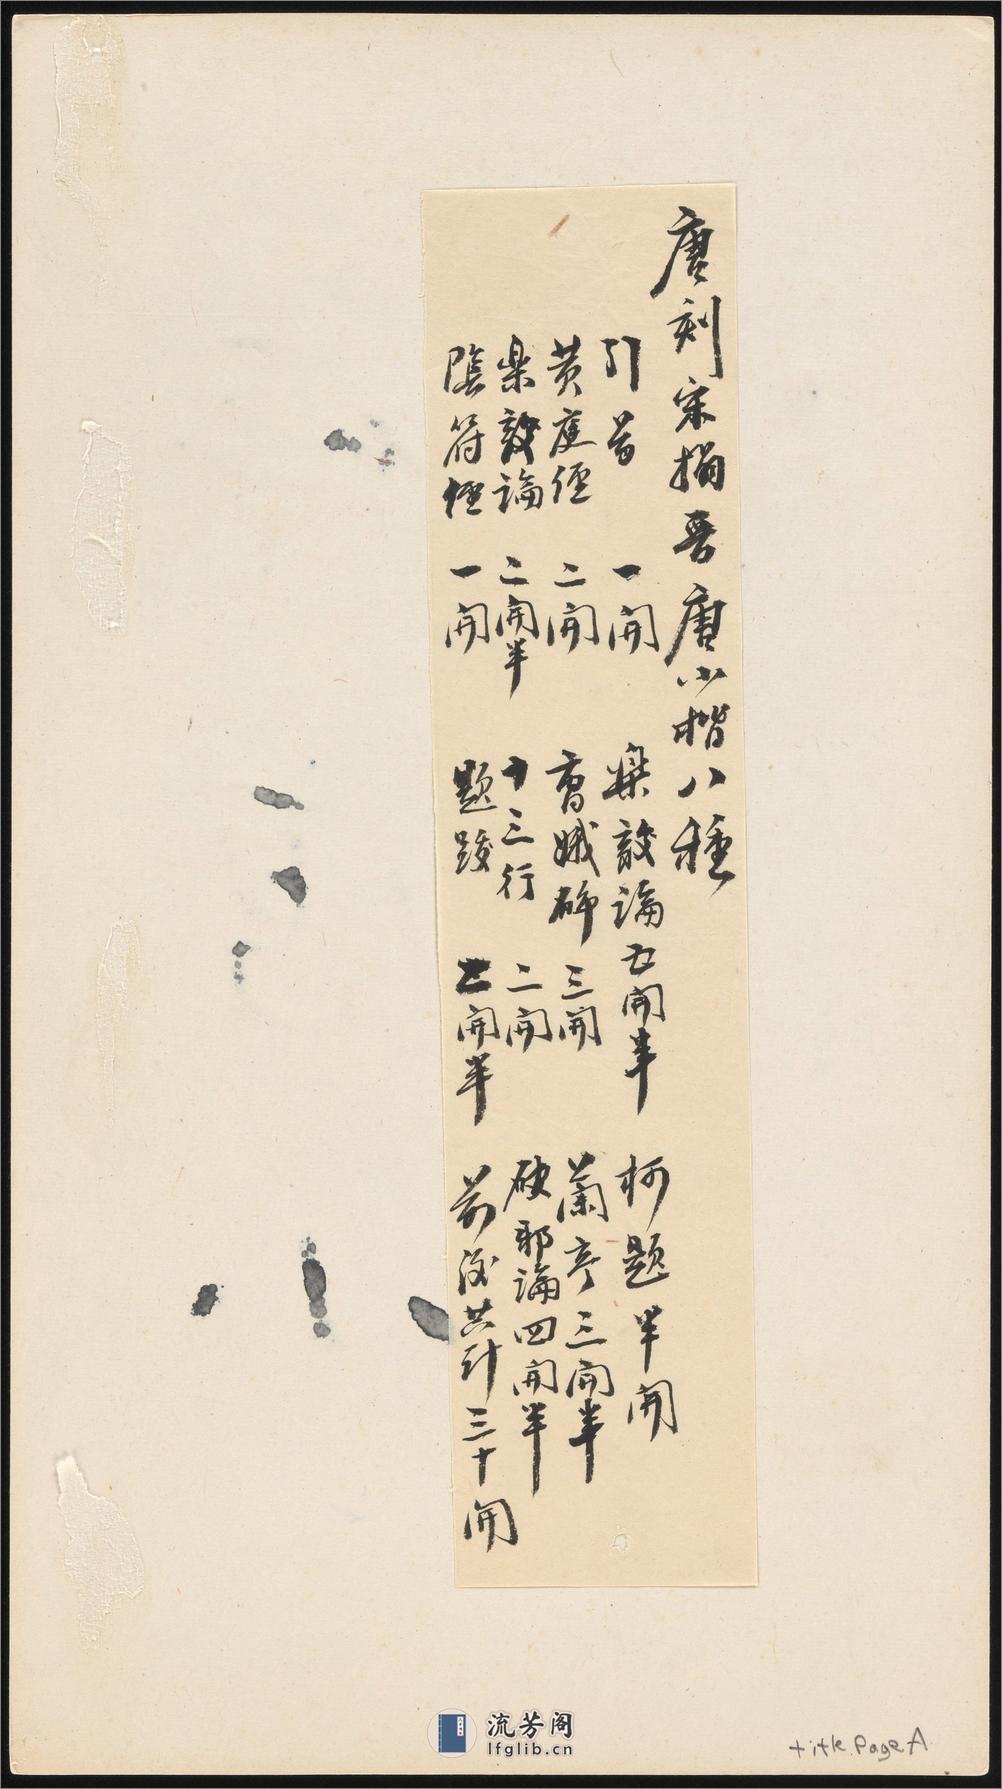 唐刻宋搨晋唐小楷八種
引首 一開 樂毅論五開半 柯題半開
黄庭經 二開 曹娥碑 三開 蘭亭三開半
樂毅論 二開半 十三行 二開 破邪論四開半
陰符經 一開 題跋 開半 前後共計三十開
流芳阁
lfglib.cn
title Page A